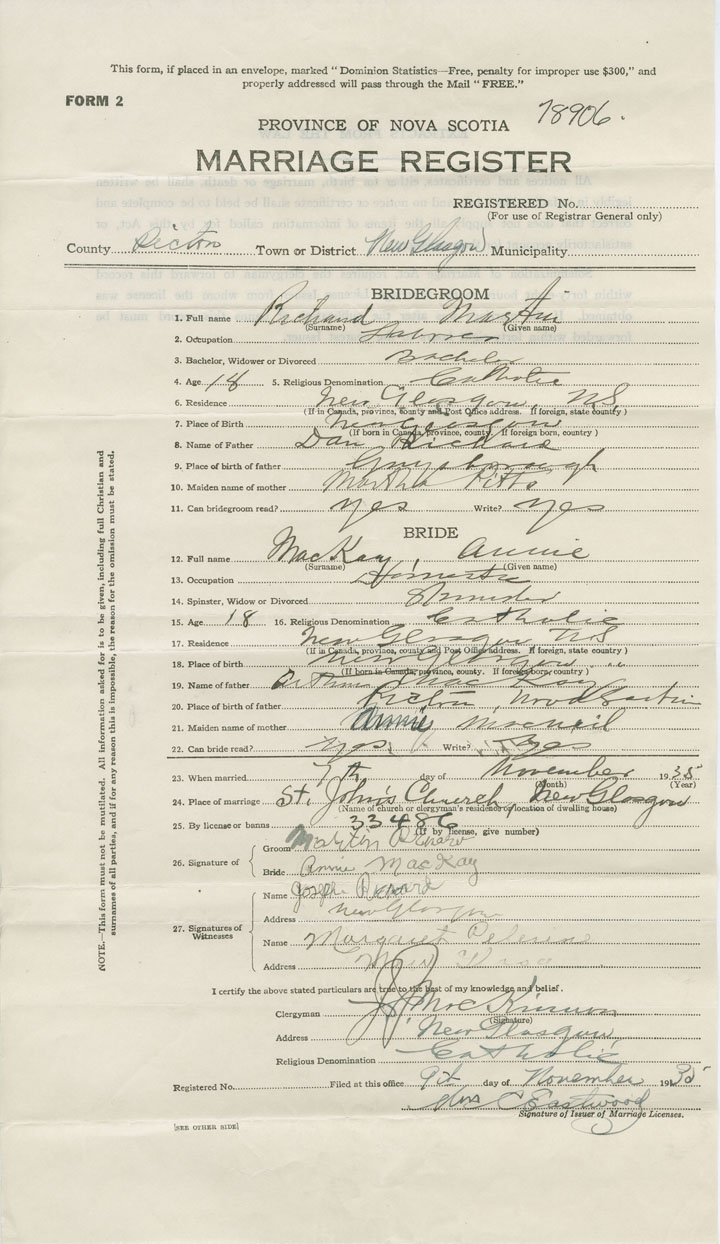 This form, if placed in an envelope, marked "Dominion Statistics—Free, penalty for improper use $300," and
properly addressed will pass through the Mail "FREE."
FORM 2
78906.
PROVINCE OF NOVA SCOTIA
MARRIAGE REGISTER
REGISTERED No.
(For use of Registrar General only)
County Pictou Town or District New Glasgow Municipality
BRIDEGROOM
1. Full name Richard Martin
(Surname) (Given name)
2. Occupation Laborer
3. Bachelor, Widower or Divorced Bachelor
4. Age 18 5. Religious Denomination Catholic
6. Residence New Glasgow, NS
(If in Canada, province, county and Post Office address. If foreign, state country)
7. Place of Birth New Glasgow
(If born in Canada, province, county. If foreign born, country)
8. Name of Father Dan Richard
9. Place of birth of father Guysborough
10. Maiden name of mother Martha Pitts
11. Can bridegroom read? yes Write? yes
BRIDE
12. Full name MacKay, Annie
(Surname) (Given name)
13. Occupation Domestic
14. Spinster, Widow or Divorced Spinster
15. Age 18 16. Religious Denomination Catholic
17. Residence New Glasgow N.S
(If in Canada, province, county and Post Office address. If foreign, state country)
18. Place of birth New Glasgow " "
(If born in Canada, province, county. If foreign born, country)
19. Name of father MacKay
20. Place of birth of father Pictou, Nova Scotia
21. Maiden name of mother Annie Macneil
22. Can bride read? yes Write? yes
23. When married 7th day of November 1935
(Month) (Year)
24. Place of marriage St. John's Church, New Glasgow
(Name of church or clergyman's residence or location of dwelling house)
25. By license or banns 33486
(If by license, give number)
26. Signature of
Groom Martin Richard
Bride Annie MacKay
27. Signatures of Witnesses
Name Joseph Richard
Address New Glasgow
Name Margaret
Address
I certify the above stated particulars are true to the best of my knowledge and belief.
Clergyman MacKinnon
(Signature)
Address New Glasgow
Religious Denomination Catholic
Registered No. Filed at this office 9th day of November 1935
Mrs C Eastwood
Signature of Issuer of Marriage Licenses.
[SEE OTHER SIDE]
NOTE.—This form must not be mutilated. All information asked for is to be given, including full Christian and
surnames of all parties, and if for any reason this is impossible, the reason for the omission must be stated.